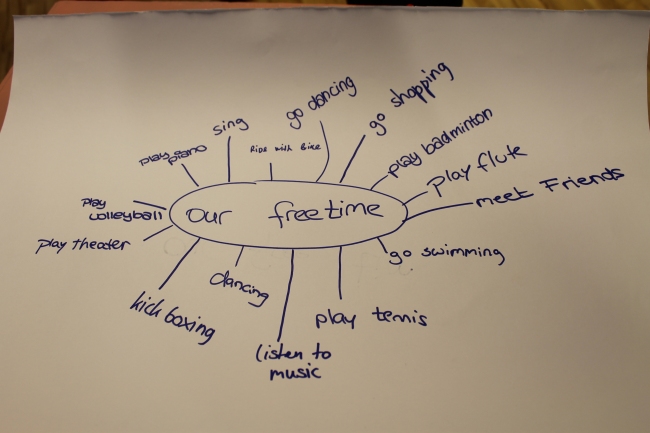 go shopping
go dancing
sing
Ride with Bike
play piano
play badminton
play flute
meet Friends
play
volleyball
our freetime
play theater
go swimming
dancing
kick boxing
play tennis
listen to
music